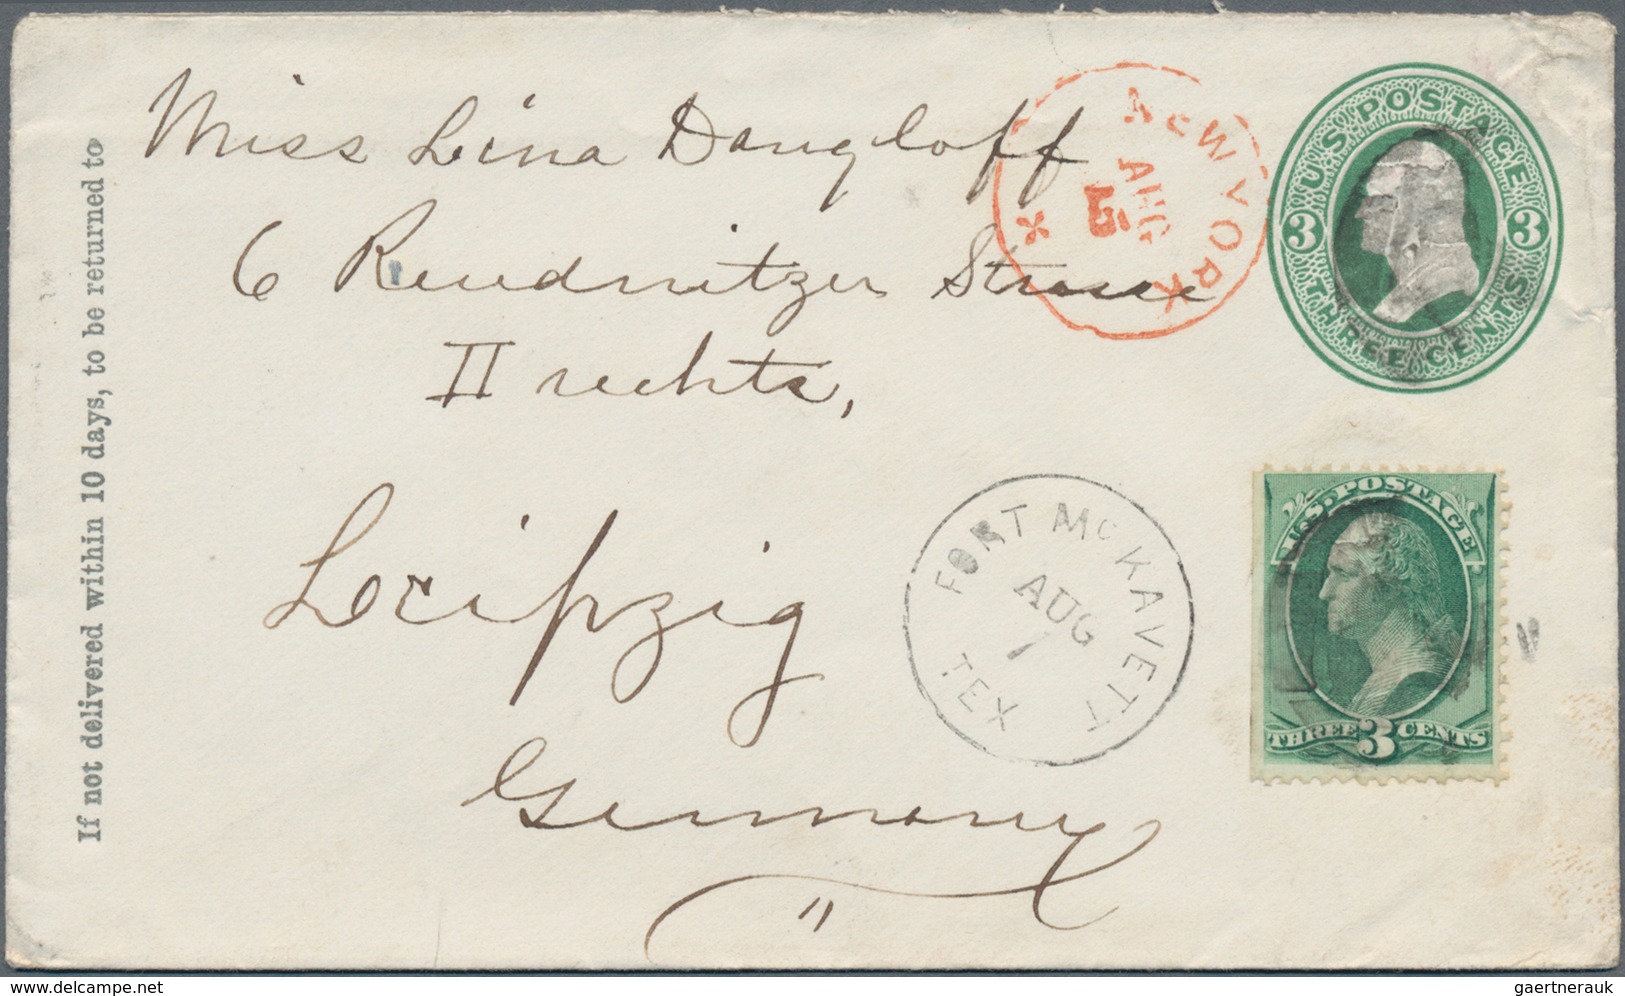 If not delivered within 10 days, to be returned to
Miss Lina Dangloff
6 Reudnitzer Strasse
II rechts,
Leipzig
Germany
NEW YORK
AUG
5
U.S. POSTAGE
3 3
THREE CENTS
FORT McKAVETT
AUG
1
TEX
U.S. POSTAGE
THREE 3 CENTS
www.delcampe.net
gaertnerauk